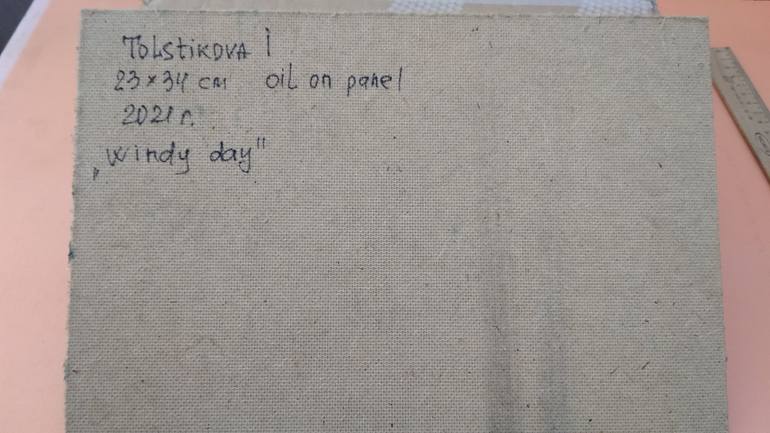 Tolstikova I
23×34 см oil on panel
2021 г.
„windy day"